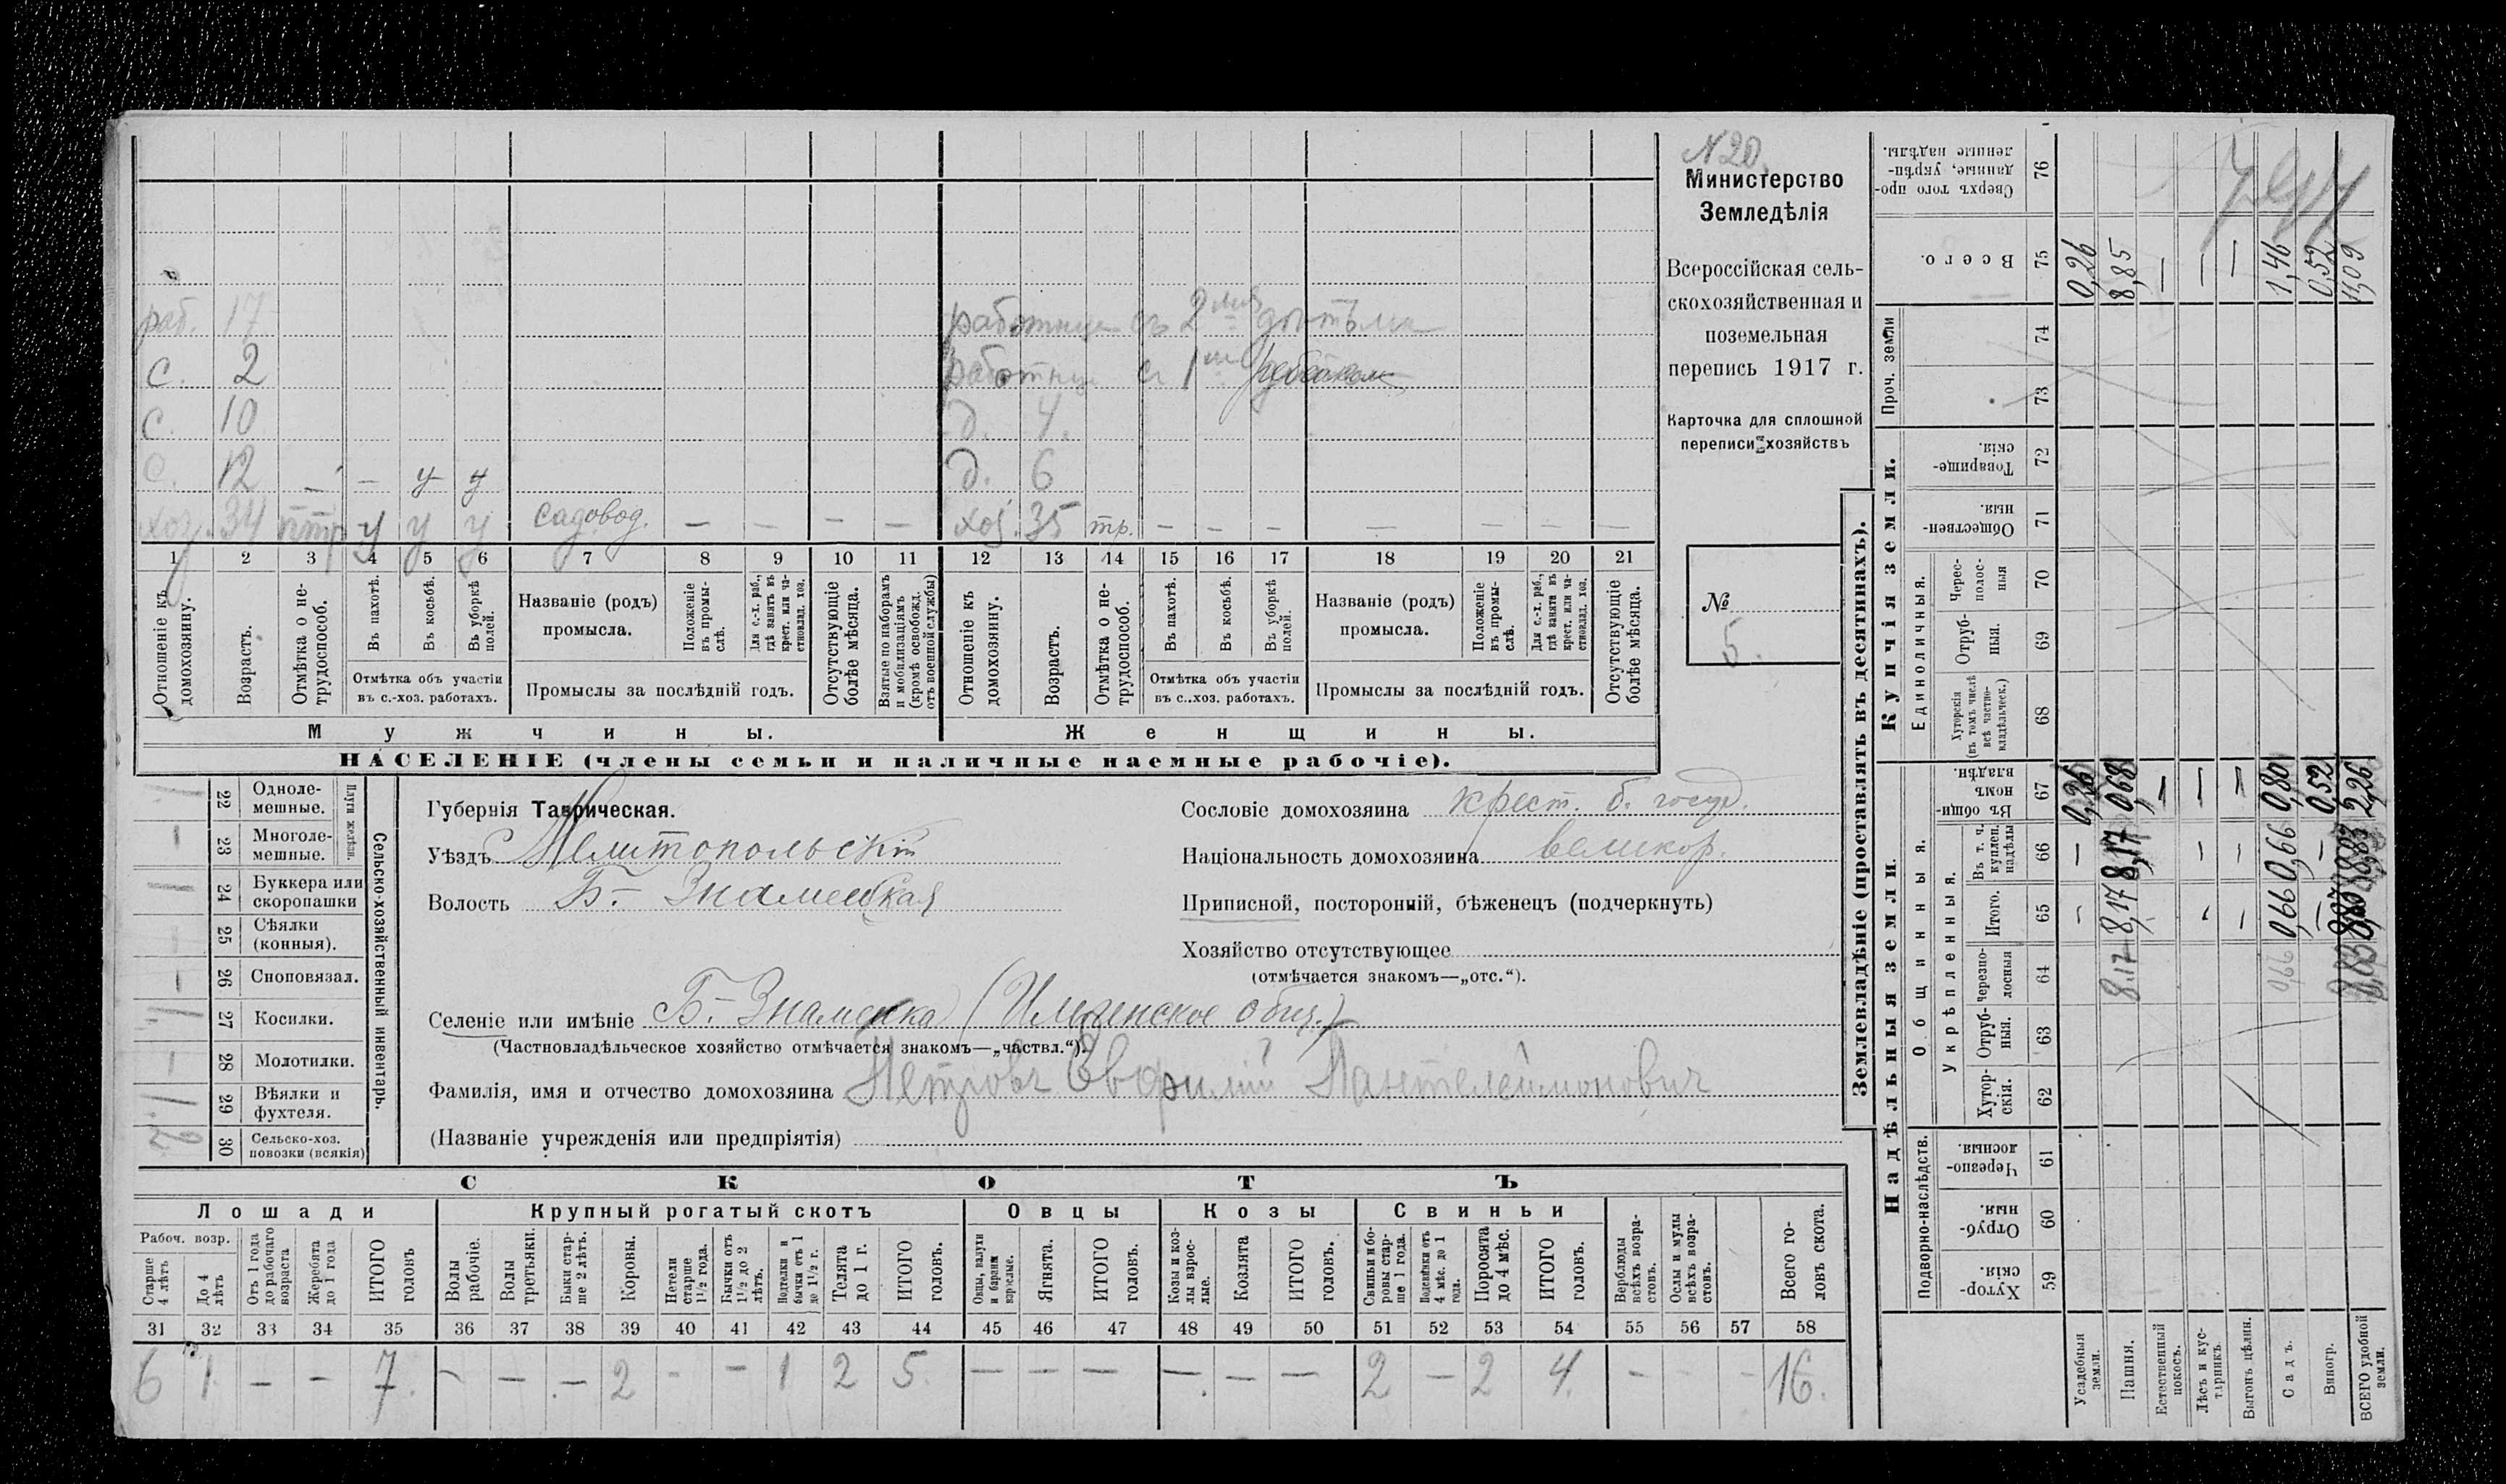 N 20.
Министерство
Земледѣлія
Всероссійская сель-
скохозяйственная и
поземельная
перепись 1917 г.
Карточка для сплошной
переписи хозяйствъ
№
5.
раб. 17
с. 2
с. 10
с. 12 – – у у
хоз. 34 птр у у у садовод. – – – –
работница съ 2мя дѣтьми
работница съ 1мъ
д. 4.
д. 6
хоз. 35 тр. – – – – – – –
1 2 3 4 5 6 7 8 9 10 11 12 13 14 15 16 17 18 19 20 21
Отношеніе къ домохозяину.
Возрастъ.
Отмѣтка о не-трудоспособ.
Въ пахотѣ.
Въ косьбѣ.
Въ уборкѣ полей.
Отмѣтка объ участіи въ с.-хоз. работахъ.
Названіе (родъ) промысла.
Положеніе въ промы-слѣ.
Для с.-х. раб., гдѣ занятъ въ крест. или ча-стновлад. хоз.
Промыслы за послѣдній годъ.
Отсутствующіе болѣе мѣсяца.
Взятые по наборамъ и мобилизаціямъ (кромѣ освобожд. отъ военной службы)
Отношеніе къ домохозяину.
Возрастъ.
Отмѣтка о не-трудоспособ.
Въ пахотѣ.
Въ косьбѣ.
Въ уборкѣ полей.
Отмѣтка объ участіи въ с..хоз. работахъ.
Названіе (родъ) промысла.
Положеніе въ промы-слѣ.
Для с.-х. раб., гдѣ занята въ крест. или ча-стновлад. хоз.
Промыслы за послѣдній годъ.
Отсутствующіе болѣе мѣсяца.
Мужчины. Женщины.
НАСЕЛЕНІЕ (члены семьи и наличные наемные рабочіе).
Сельско-хозяйственный инвентарь.
Плуги желѣзн.
1 22 Одноле-мешные.
– 23 Многоле-мешные.
1 24 Буккера или скоропашки
– 25 Сѣялки (конныя).
– 26 Сноповязал.
1 27 Косилки.
– 28 Молотилки.
1 29 Вѣялки и фухтеля.
2 30 Сельско-хоз. повозки (всякія)
Губернія Таврическая.
Уѣздъ Мелитопольскій
Волость Б.- Знаменская
Сословіе домохозяина крест. б. госуд.
Національность домохозяина великор.
Приписной, посторонній, бѣженецъ (подчеркнуть)
Хозяйство отсутствующее
(отмѣчается знакомъ—„отс.“).
Селеніе или имѣніе Б.- Знаменка (Ильинское общ.)
(Частновладѣльческое хозяйство отмѣчается знакомъ—„частвл.“).
Фамилія, имя и отчество домохозяина Петровъ Пантелеймоновичъ
(Названіе учрежденія или предпріятія)
СКОТЪ
Лошади Крупный рогатый скотъ Овцы Козы Свиньи
Рабоч. возр.
Старше 4 лѣтъ
До 4 лѣтъ
Отъ 1 года до рабочаго возраста
Жеребята до 1 года
ИТОГО головъ
Волы рабочіе.
Волы третьяки.
Быки стар-ше 2 лѣтъ.
Коровы.
Нетели старше 1½ года.
Бычки отъ 1½ до 2 лѣтъ.
Подтелки и бычки отъ 1 до 1½ г.
Телята до 1 г.
ИТОГО головъ.
Овцы, валухи и бараны взрослые.
Ягнята.
ИТОГО головъ.
Козы и коз-лы взрос-лые.
Козлята
ИТОГО головъ.
Свиньи и бо-ровы стар-ше 1 года.
Подсвинки отъ 4 мѣс. до 1 года.
Поросята до 4 мѣс.
ИТОГО головъ.
Верблюды всѣхъ возра-стовъ.
Ослы и мулы всѣхъ возра-стовъ.
Всего го-ловъ скота.
31 32 33 34 35 36 37 38 39 40 41 42 43 44 45 46 47 48 49 50 51 52 53 54 55 56 57 58
6 1 – – 7. – – – 2 – – 1 2 5. – – – – – – 2 – 2 4. – – – 16.
Землевладѣніе (проставлять въ десятинахъ).
Купчія земли.
Надѣльныя земли.
Сверхъ того про-данные, укрѣп-ленные надѣлы. 76
Всего. 75 0,26 8,85 – – – 1,46 0,52 11,09
Проч. земли 74 73
Товарище-скія. 72
Обществен-ныя. 71
Единоличныя.
Черес-полос-ныя 70
Отруб-ныя. 69
Хуторскія (въ томъ числѣ всѣ частно-владѣльческ.) 68
Общинныя.
Въ общи-номъ владѣн. 67 0,26 0,68 – – – 0,80 0,52 2,26
Укрѣпленныя.
Въ т. ч. куплен. надѣлы 66 – 8,17 – – 0,66 –
Итого. 65 – 8,17 – – 0,66 –
Черезпо-лосныя 64 8,17 0,66 8,83
Отруб-ныя. 63
Хутор-скія. 62
Подворно-наслѣдств.
Черезпо-лосныя. 61
Отруб-ныя. 60
Хутор-скія. 59
Усадебныя земли.
Пашня.
Естественный покосъ.
Лѣсъ и кус-тарникъ.
Выгонъ цѣлин.
Садъ.
Виногр.
ВСЕГО удобной земли.